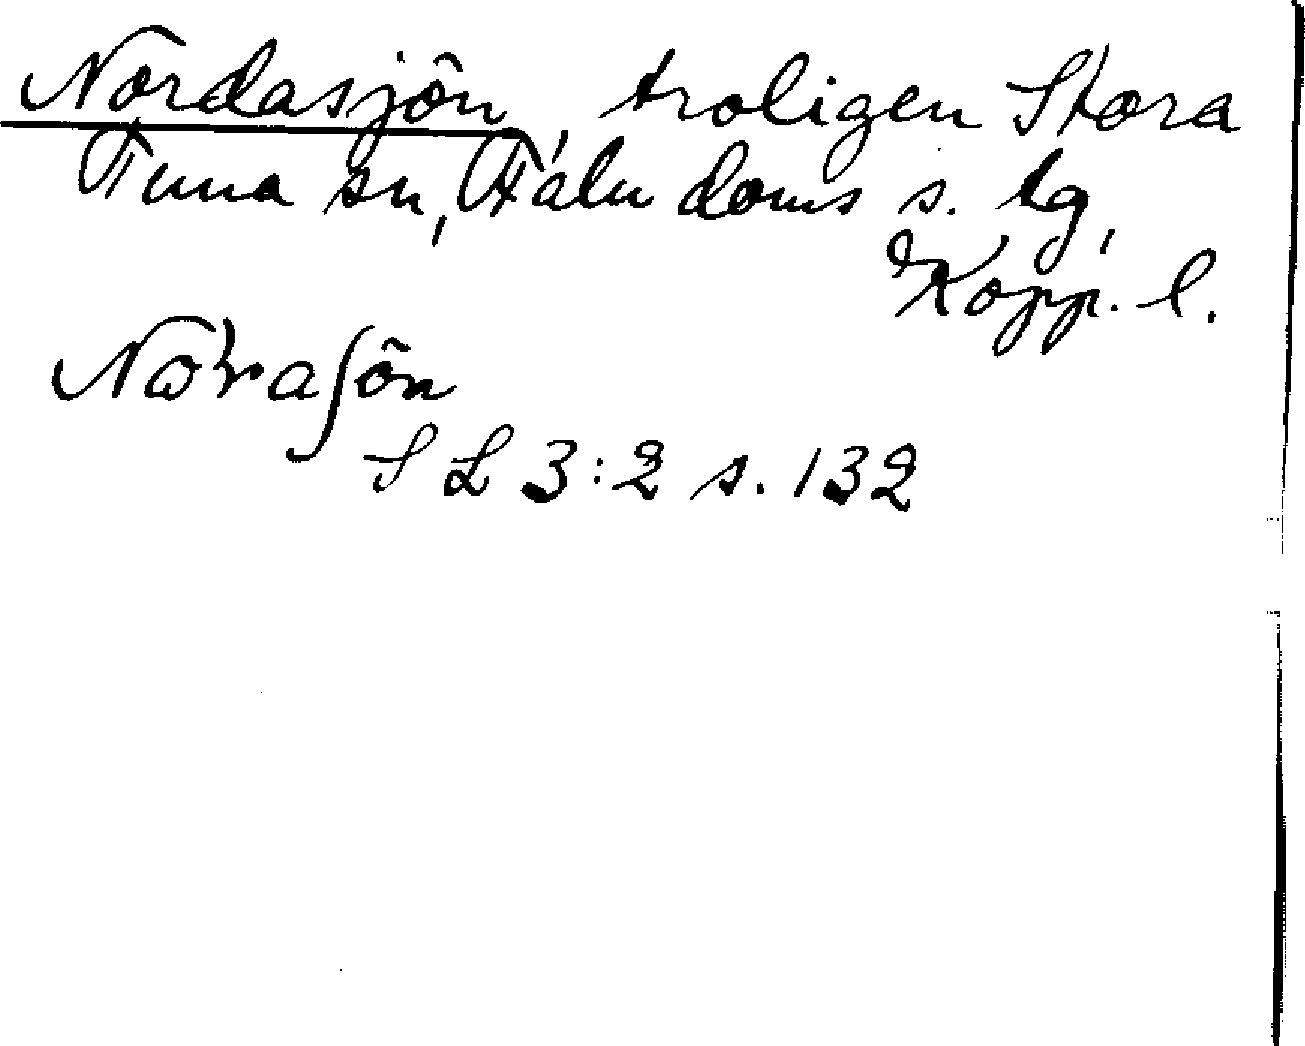 Nordasjön, troligen Stora
Tuna sn, Falu doms s. lg,
Kopp. l.
Norasjön
S L 3:2 s. 132